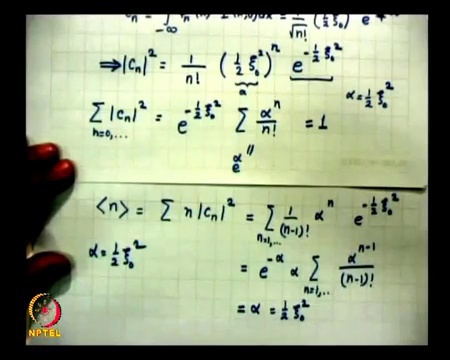 Cn = ∫ -∞ dx = 1/√n! (½ ξ₀²) e
⟹ |Cn|² = 1/n! (½ ξ₀²)ⁿ e^(-½ ξ₀²)
α
α = ½ ξ₀²
∑ n=0,... |Cn|² = e^(-½ ξ₀²) ∑ αⁿ/n! = 1
e^α "
⟨n⟩ = ∑ n |Cn|² = ∑ n=1,... 1/(n-1)! αⁿ e^(-½ ξ₀²)
α = ½ ξ₀²
= e^(-α) α ∑ n=1,... α^(n-1)/(n-1)!
= α = ½ ξ₀²
NPTEL